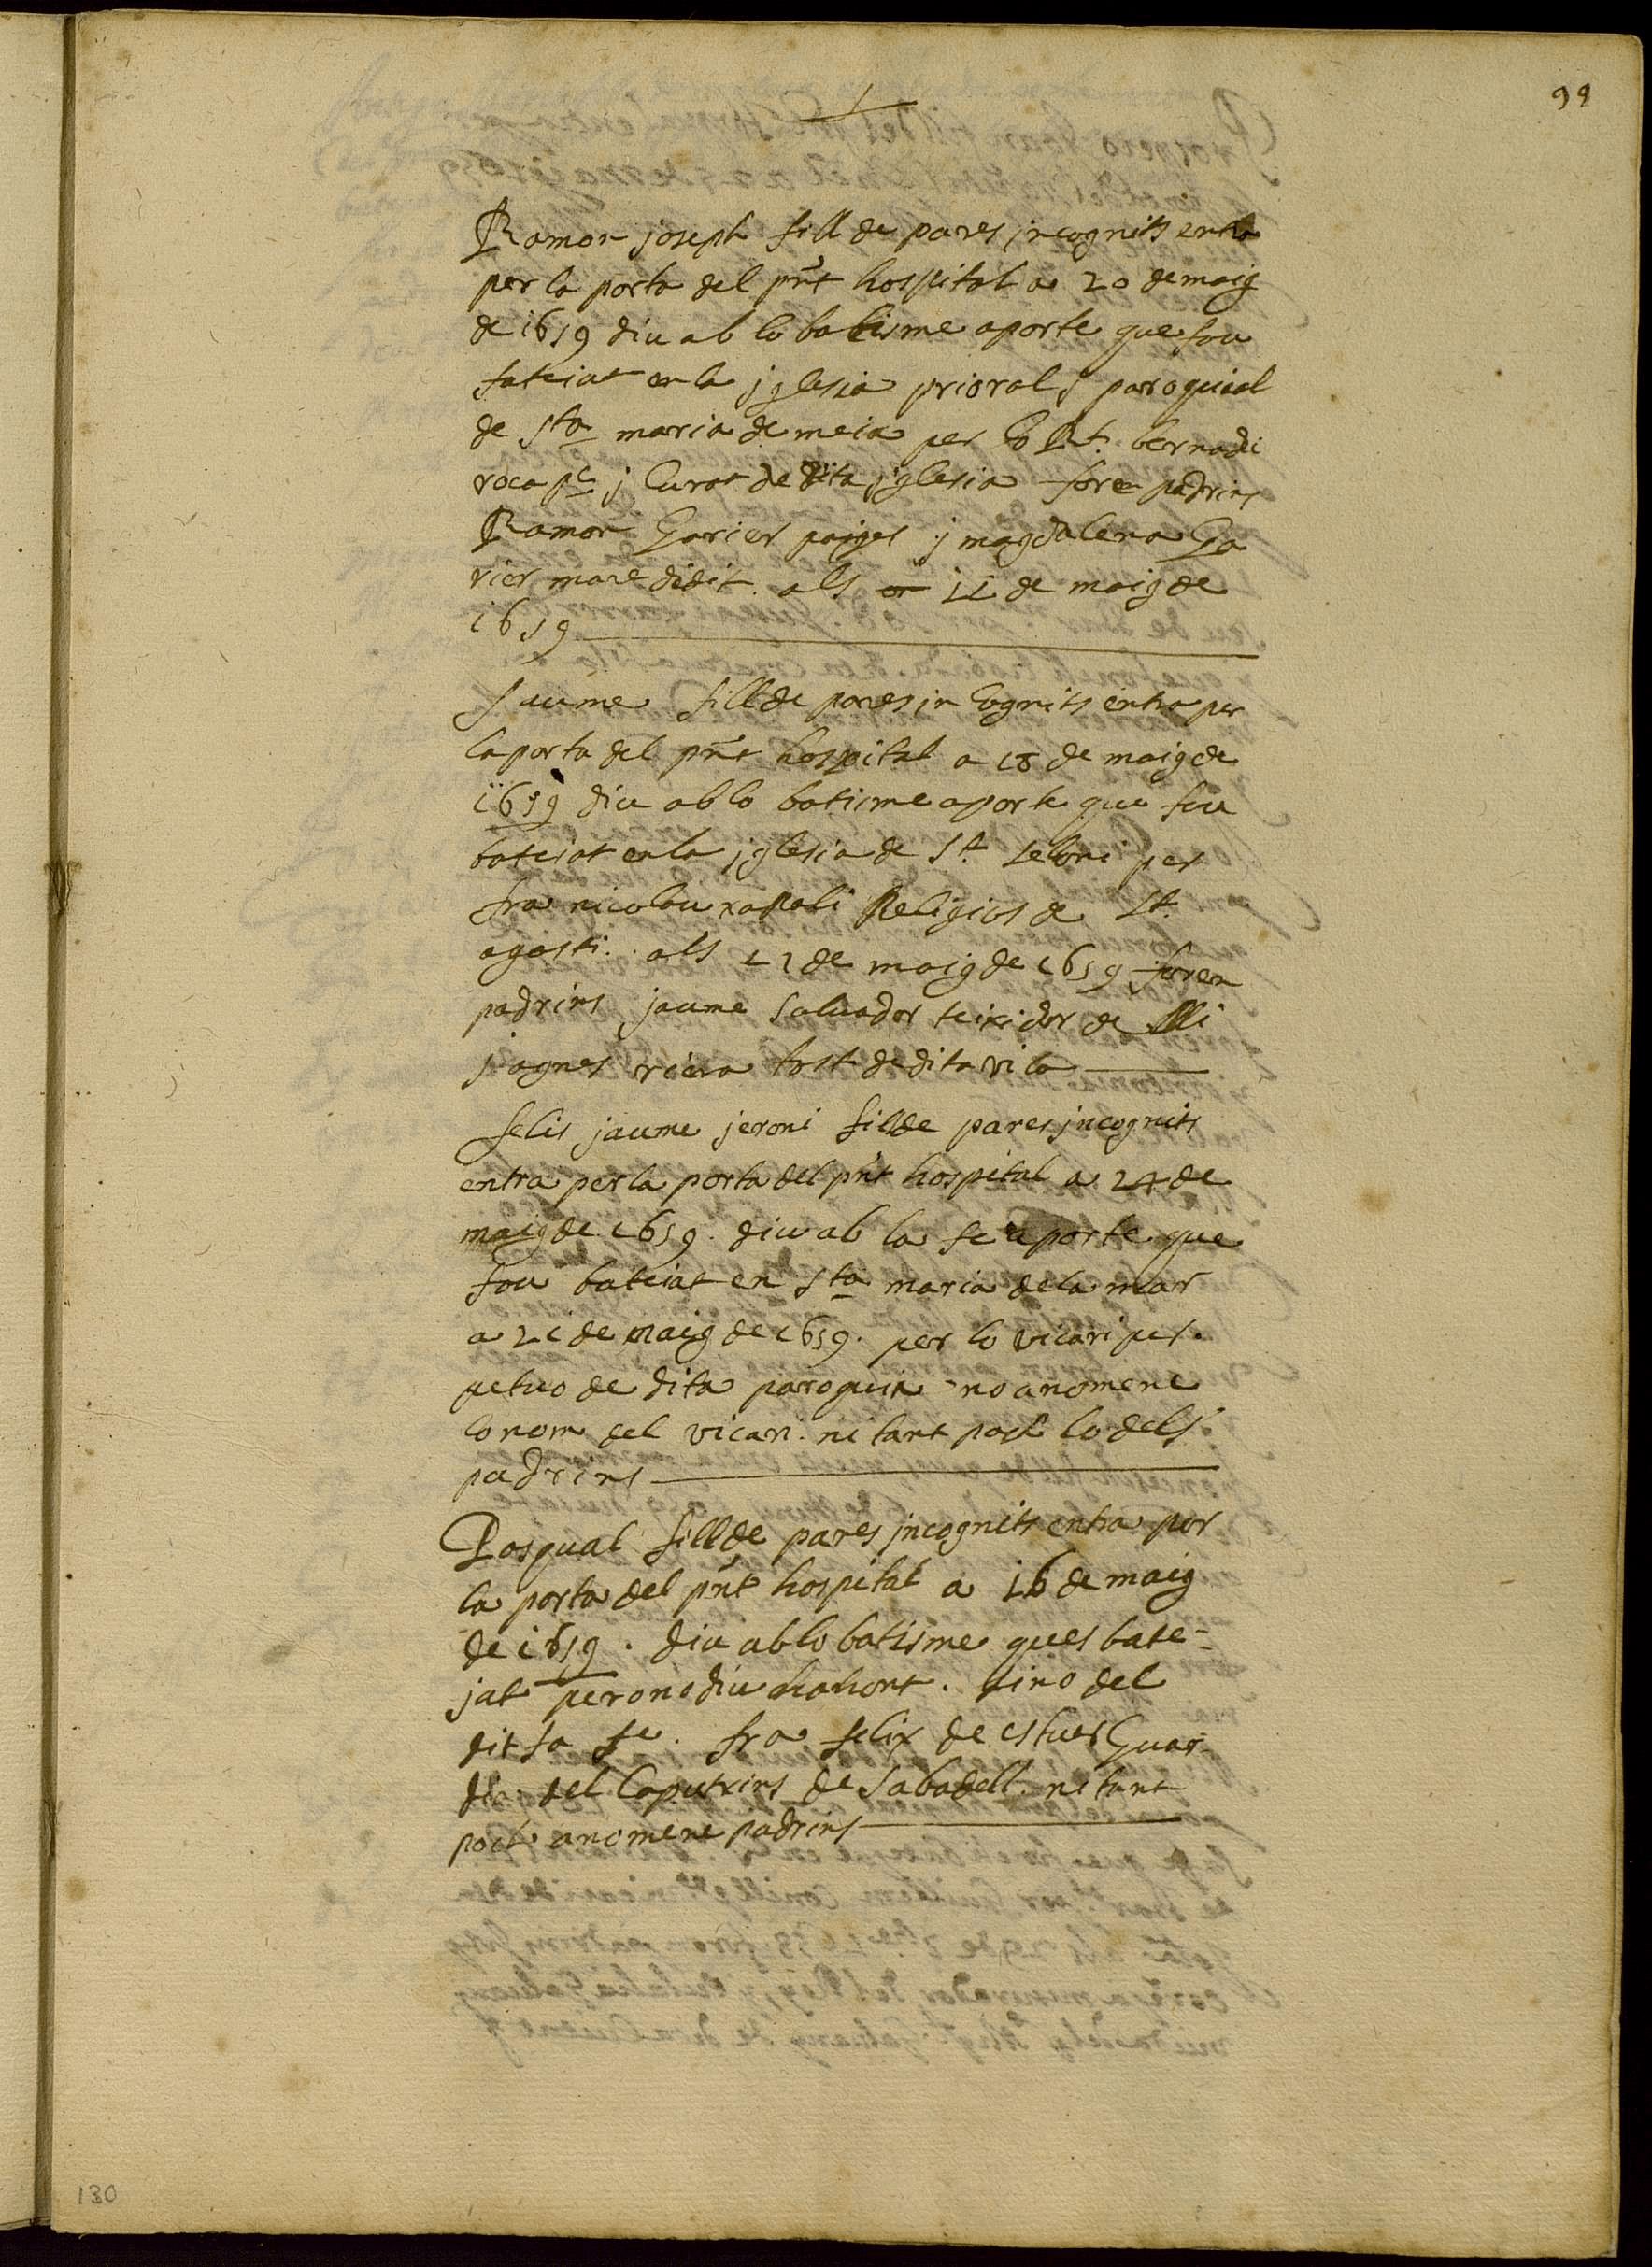 99
Ramon joseph fill de pares jncognits entra
per la porta del pnt hospital a 20 de maig
de 1659 diu ab lo batisme aporte que fou
batciat en la jglesia prioral j paroquial
de sta maria de meia per lo Rt. bernadi
roca pe j Curat de dita jglesia foren padrins
Ramon Garier pajges j magdalena Ga
rier mare didit als 11 de maig de
1659
Jaume fill de pares jn Cognits entra per
la porta del pnt hospital a 18 de maig de
1659 diu ab lo batisme aporte que fou
batciat en la jglesia de St seloni per
fra nicolau Religios de St.
agosti. als 17 de maig de 1659 foren
padrins jaume saluador teixidor de lli
j agnes riera tost de dita vila
felis jaume jeroni fill de pares jncognits
entra per la porta del pnt hospital a 24 de
maig de 1659. diu ab la fe aporte que
fou batciat en sta maria de la mar
a 21 de maig de 1659. per lo vicari per
petuo de dita paroquia no anomene
lo nom del vicari. ni tant poch lo dels
padrins
Pasqual fill de pares jncognits entra per
la porta del pnt hospital a 16 de maig
de 1659. diu ab lo batisme ques bate-
jat pero no diu hahont. sino del
dit fa fe. fra felix de estues Guar
dia del Caputxins de Sabadell. ni tant
poch anomene padrins
130